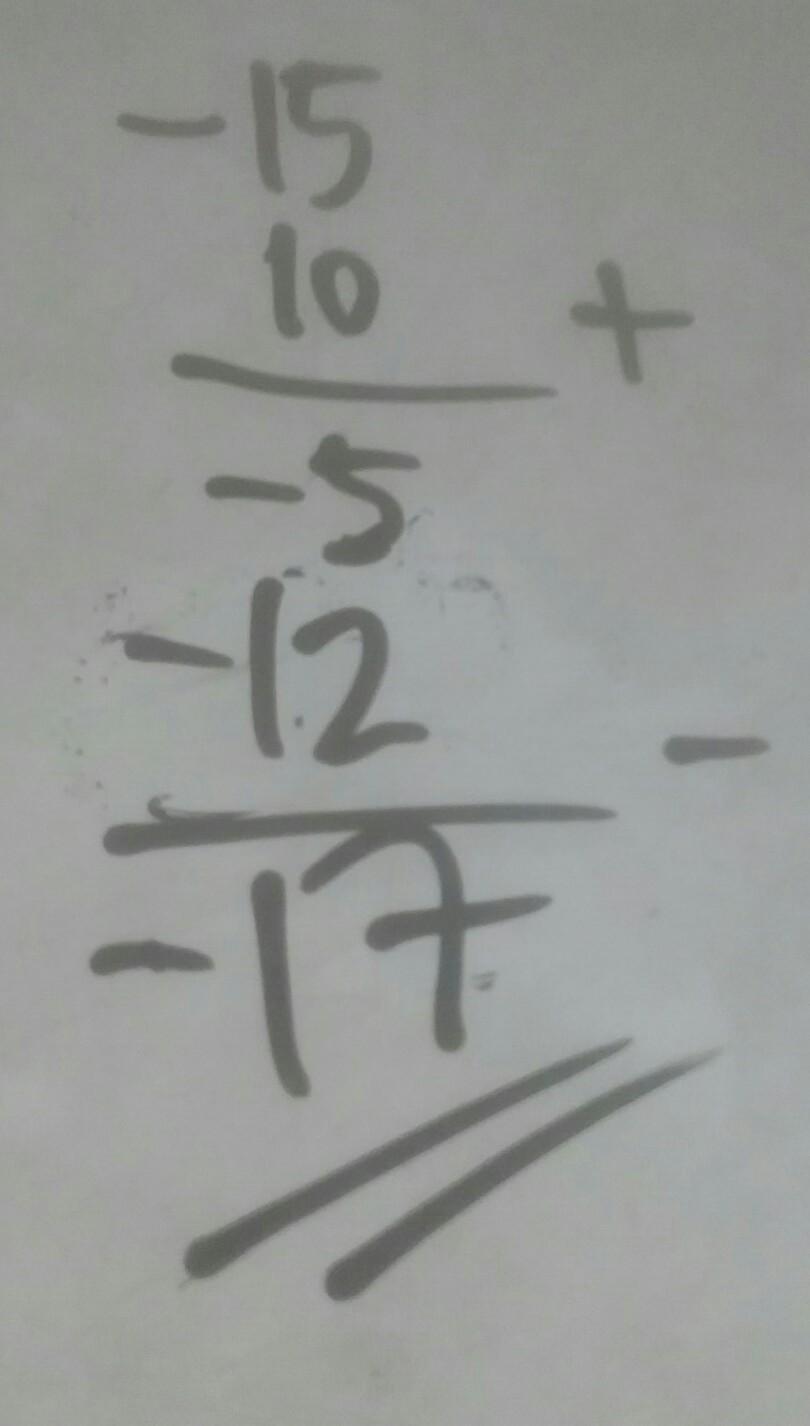 -15
10 +
-5
-12 -
-17